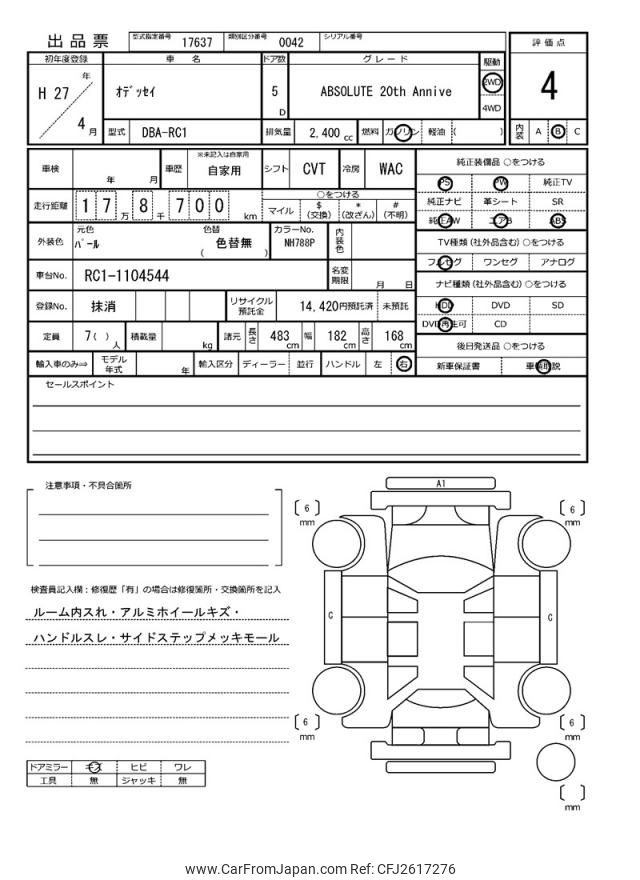 出品票 型式指定番号 17637 類別区分番号 0042 シリアル番号
評価点
4
内装 A B C
初年度登録 車名 ドア数 グレード 駆動
H 27 年 4 月
ｵﾃﾞｯｾｲ 5 D ABSOLUTE 20th Annive 2WD
4WD
型式 DBA-RC1 排気量 2,400 cc 燃料 ガソリン 軽油 ( )
車検 年 月 車歴 ※未記入は自家用 自家用 シフト CVT 冷房 WAC
走行距離 17万8千700 km ○をつける
マイル $(交換) *(改ざん) #(不明)
外装色 元色 ﾊﾟｰﾙ 色替 ( 色替無 ) カラーNo. NH788P 内装色
車台No. RC1-1104544 名変期限 月 日
登録No. 抹消 リサイクル預託金 14,420円預託済 未預託
定員 7( ) 人 積載量 kg 諸元 長さ 483 cm 幅 182 cm 高さ 168 cm
輸入車のみ⇒ モデル年式 年 輸入区分 ディーラー 並行 ハンドル 左 右
純正装備品 ○をつける
PS PW 純正TV
純正ナビ 革シート SR
純正AW エアB ABS
TV種類(社外品含む) ○をつける
フルセグ ワンセグ アナログ
ナビ種類(社外品含む) ○をつける
HDD DVD SD
DVD再生可 CD
後日発送品 ○をつける
新車保証書 車輌取説
セールスポイント
注意事項・不具合箇所
検査員記入欄：修復歴「有」の場合は修復箇所・交換箇所を記入
ルーム内スれ・アルミホイールキズ・
ハンドルスレ・サイドステップメッキモール
ドアミラー キズ ヒビ ワレ
工具 無 ジャッキ 無
A1
[ 6 ] mm
[ 6 ] mm
C
C
[ 6 ] mm
[ 6 ] mm
[ ] mm
www.CarFromJapan.com Ref: CFJ2617276